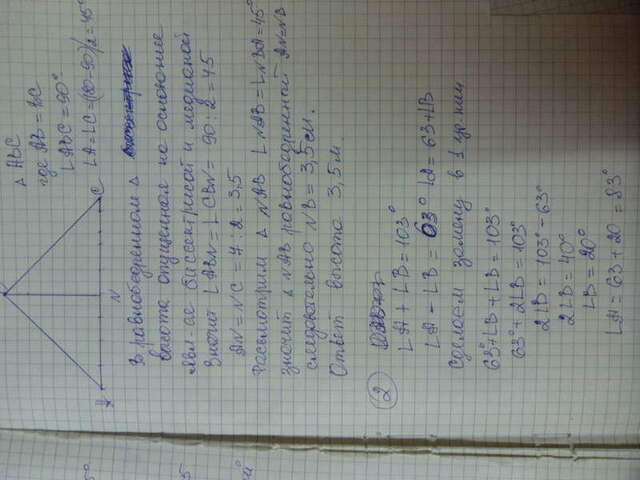 Δ ABC
где AB = BC
∠ABC = 90°
∠A = ∠C = (180-90)/2 = 45°
C
N
В равнобедренном Δ
высота опущенная на основание
явл-ся биссектрисой и медианой
Значит ∠ABN = ∠CBN = 90:2 = 45
AN = NC = 7:2 = 3,5
Рассмотрим Δ NAB ∠NAB = ∠NBA = 45°
значит Δ NAB равнобедренный AN = NB
следовательно NB = 3,5 см.
Ответ высота 3,5 м.
2
∠A + ∠B = 103°
∠A - ∠B = 63° ∠A = 63+∠B
Сделаем замену в 1 ур-нии
63°+∠B+∠B = 103°
63°+2∠B = 103°
2∠B = 103°-63°
2∠B = 40°
∠B = 20°
∠A = 63+20 = 83°